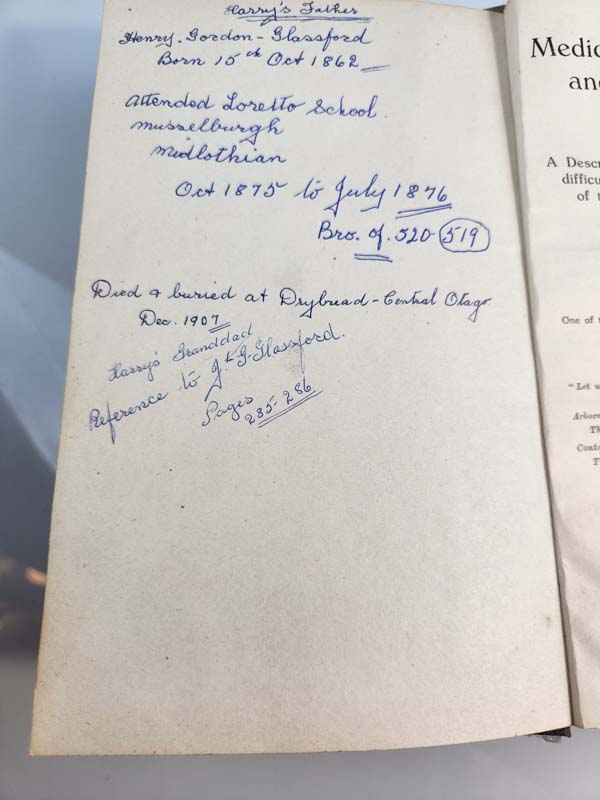 Harry's Father
Henry-Gordon-Glassford
Born 15th Oct 1862
Attended Loretto School
Musselburgh
Midlothian
Oct 1875 to July 1876
Bro. of. 520-519
Died & buried at Drybread-Central Otago
Dec. 1907
Harry's Granddad
Reference to J. G. Glassford.
Pages
285-286
Medic
an
A Descr
difficu
of t
One of t
"Let u
Arbore
Th
Conta
T